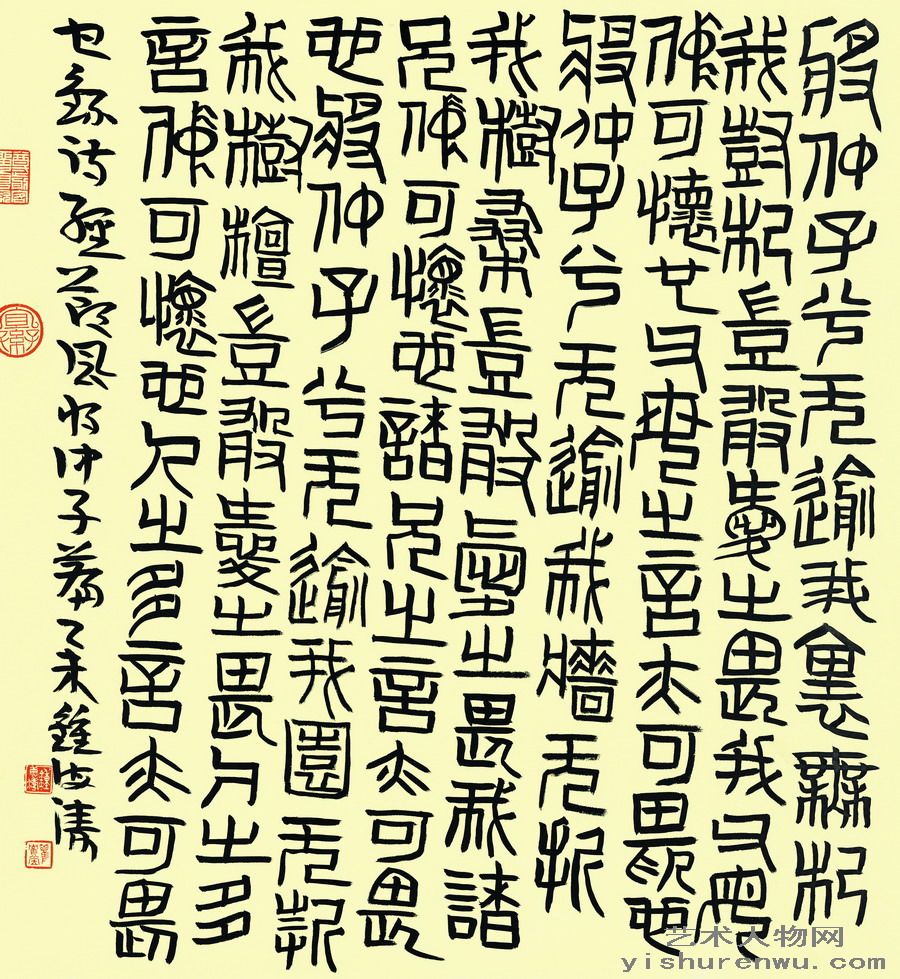 將仲子兮无逾我裏無折
我樹杞豈敢愛之畏我父母
仲可懷也父母之言亦可畏也
將仲子兮无逾我牆无折
我樹桑豈敢愛之畏我諸
兄仲可懷也諸兄之言亦可畏
也將仲子兮无逾我園无折
我樹檀豈敢愛之畏人之多
言仲可懷也人之多言亦可畏
也錄诗經鄭風將仲子篇乙未鍾海濤
艺术人物网
yishurenwu.com